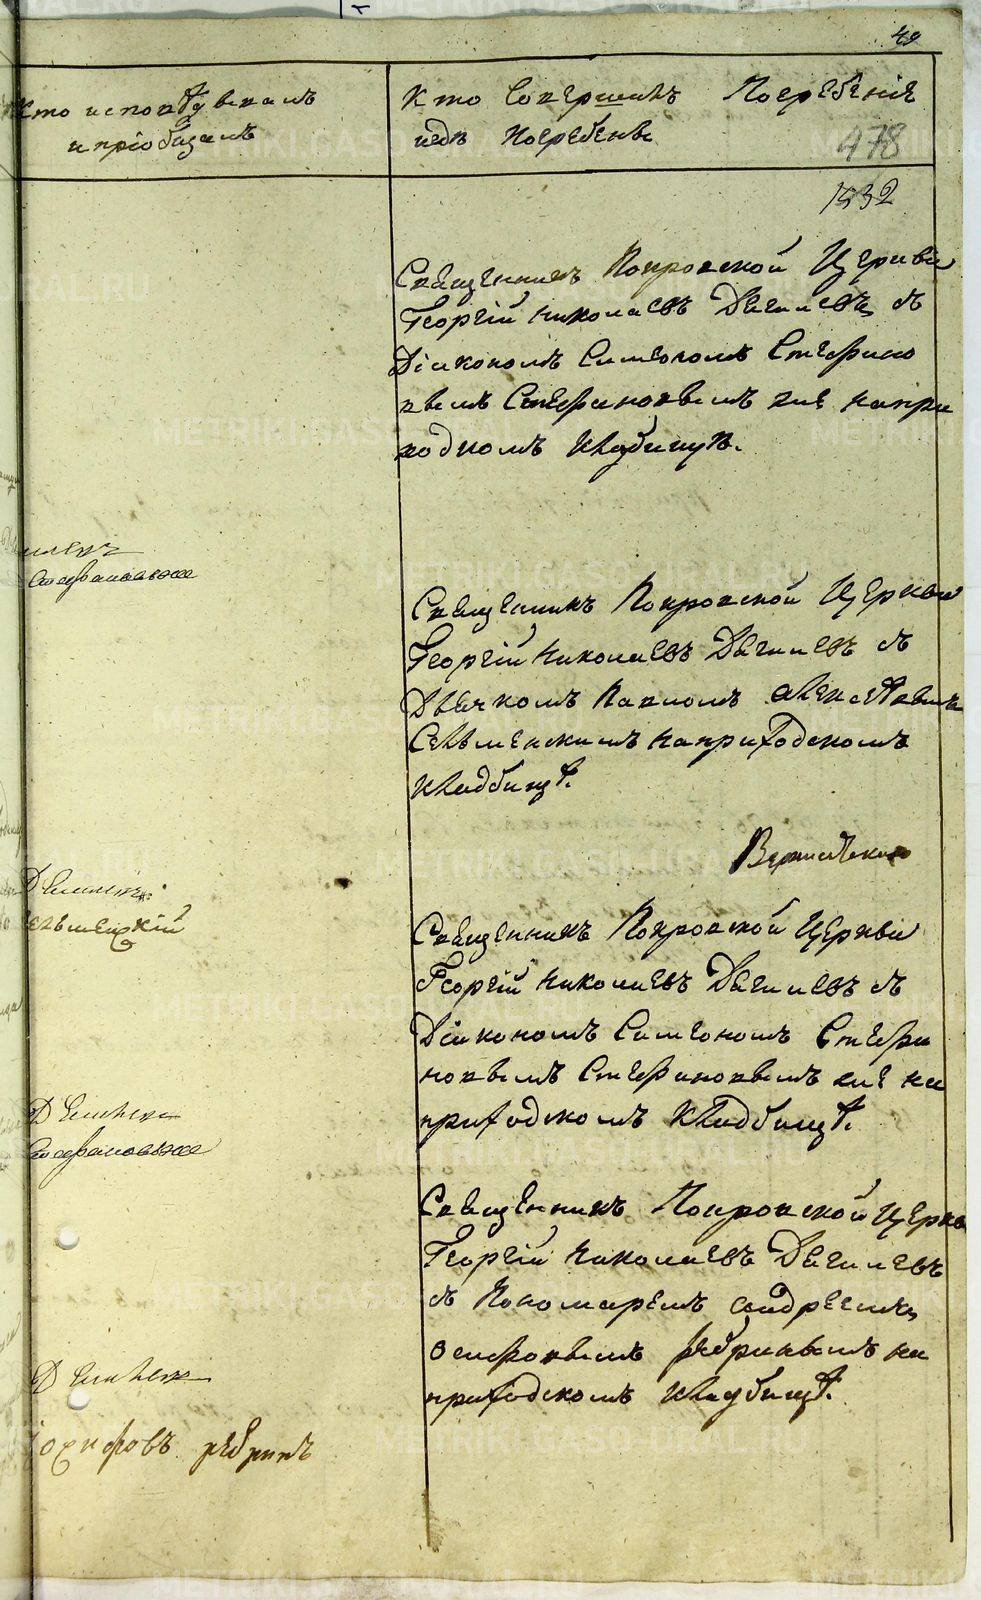 49
Кто исповѣдывалъ
и пріобщалъ
Кто Совершилъ Погребеніе
и гдѣ Погребены
478
1532
Священникъ Покровской Церкви
Георгій Николаевъ Данилевъ съ
Діакономъ Симеономъ Стефано
вымъ Стефановымъ же на при
ходномъ Кладбищѣ.
Стефановъ же
Священникъ Покровской Церкви
Георгій Николаевъ Данилевъ съ
Дьячкомъ Павломъ Алексѣевымъ
Сельменскимъ на приходскомъ
Кладбищѣ.
Священникъ Покровской Церкви
Георгій Николаевъ Данилевъ съ
Діакономъ Симеономъ Стефа
новымъ Стефановымъ же на
приходскомъ Кладбищѣ.
Стефановъ же
Священникъ Покровской Церкв
Георгій Николаевъ Данилевъ
съ Пономаремъ Андреемъ
Осифовымъ Рѣбринымъ на
приходскомъ Кладбищѣ.
Іосифовъ Рѣбринъ